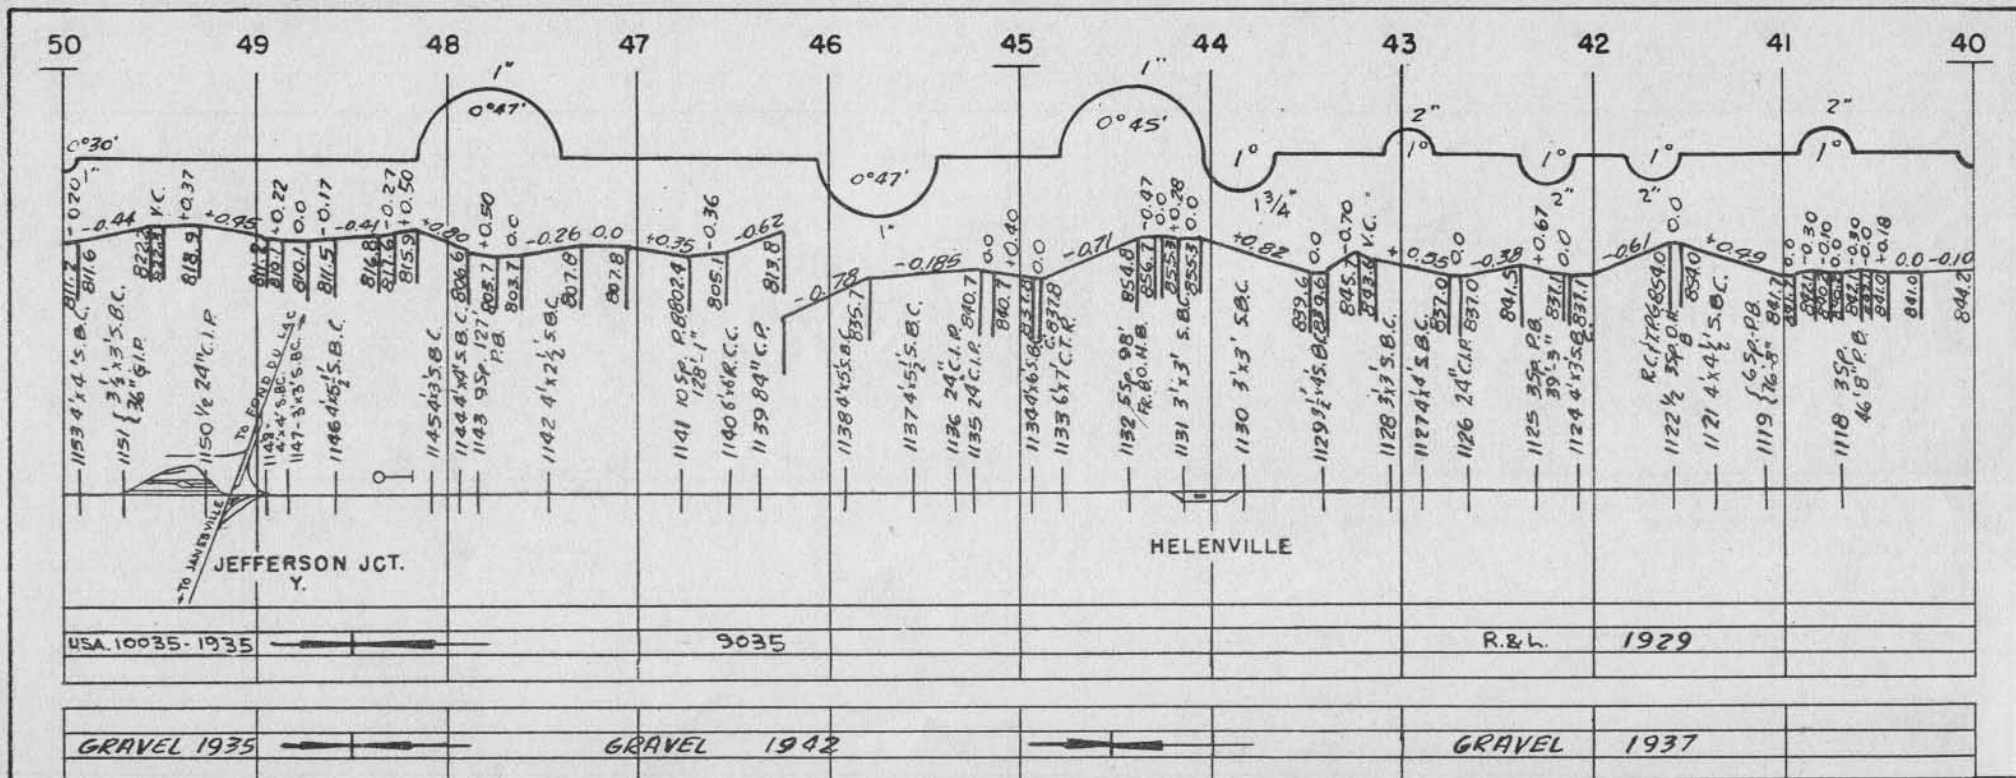 50 49 48 47 46 45 44 43 42 41 40
1" 1" 2" 2"
0°30' 0°47' 0°47' 0°45' 1° 1° 1° 1° 1°
1" 1" 1 3/4" 2" 2"
-0.20 -0.44 V.C. +0.37 +0.45 +0.22 0.0 -0.17 -0.41 -0.27 +0.50 +0.80 +0.50 0.0 -0.26 0.0 +0.35 -0.36 -0.62 -0.78 -0.185 0.0 +0.40 0.0 -0.71 -0.47 0.0 +0.28 0.0 +0.82 0.0 -0.70 V.C. +0.55 0.0 -0.38 +0.67 0.0 -0.61 0.0 +0.49 0.0 -0.30 -0.10 0.0 -0.30 -0.0 +0.18 0.0 -0.10
811.2 811.6 818.9 811.2 810.1 810.1 811.5 816.8 817.6 815.9 806.6 805.7 803.7 807.8 807.8 802.4 805.1 813.8 835.7 840.7 840.7 837.8 837.8 854.8 856.7 855.3 855.3 839.6 839.6 845.1 843.6 837.0 837.0 841.5 837.1 837.1 854.0 854.0 841.7 841.7 842.1 841.0 841.0 844.2
1153 4'x4' S.B.C.
1151 { 3½'x3' S.B.C.
36" C.I.P.
1150 ½ 24" C.I.P.
TO FOND DU LAC
1148-
4'x4' S.BC.
1147-3'x3' S.BC.
1146 4'x5½' S.B.C.
1145 4'x3' S.B.C.
1144 4'x4' S.B.C.
1143 9 Sp. 127'
P.B.
1142 4'x2½' S.B.C.
1141 10 Sp. P.B.
128'-1"
1140 6'x6' R.C.C.
1139 84" C.P.
1138 4'x5' S.B.C.
1137 4'x5½' S.B.C.
1136 24" C.I.P.
1135 24" C.I.P.
1134 4'x6' S.B.C.
1133 6'x7' C.T.R.
1132 5 Sp. 98'
FR.B.O.H.B.
1131 3'x3' S.B.C.
1130 3'x3' S.B.C.
1129 3½'x4' S.B.C.
1128 3'x3' S.B.C.
1127 4'x4' S.B.C.
1126 24" C.I.P.
1125 3 Sp. P.B.
39'-3"
1124 4'x3' S.B.C.
1122 ½ 3 Sp. O.H.
B
1121 4'x4½' S.B.C.
1119 { 6 Sp. P.B.
76'-8"
1118 3 Sp.
46'8" P.B.
TO JANESVILLE
JEFFERSON JCT.
Y.
HELENVILLE
USA. 10035-1935 9035 R.&L. 1929
GRAVEL 1935 GRAVEL 1942 GRAVEL 1937